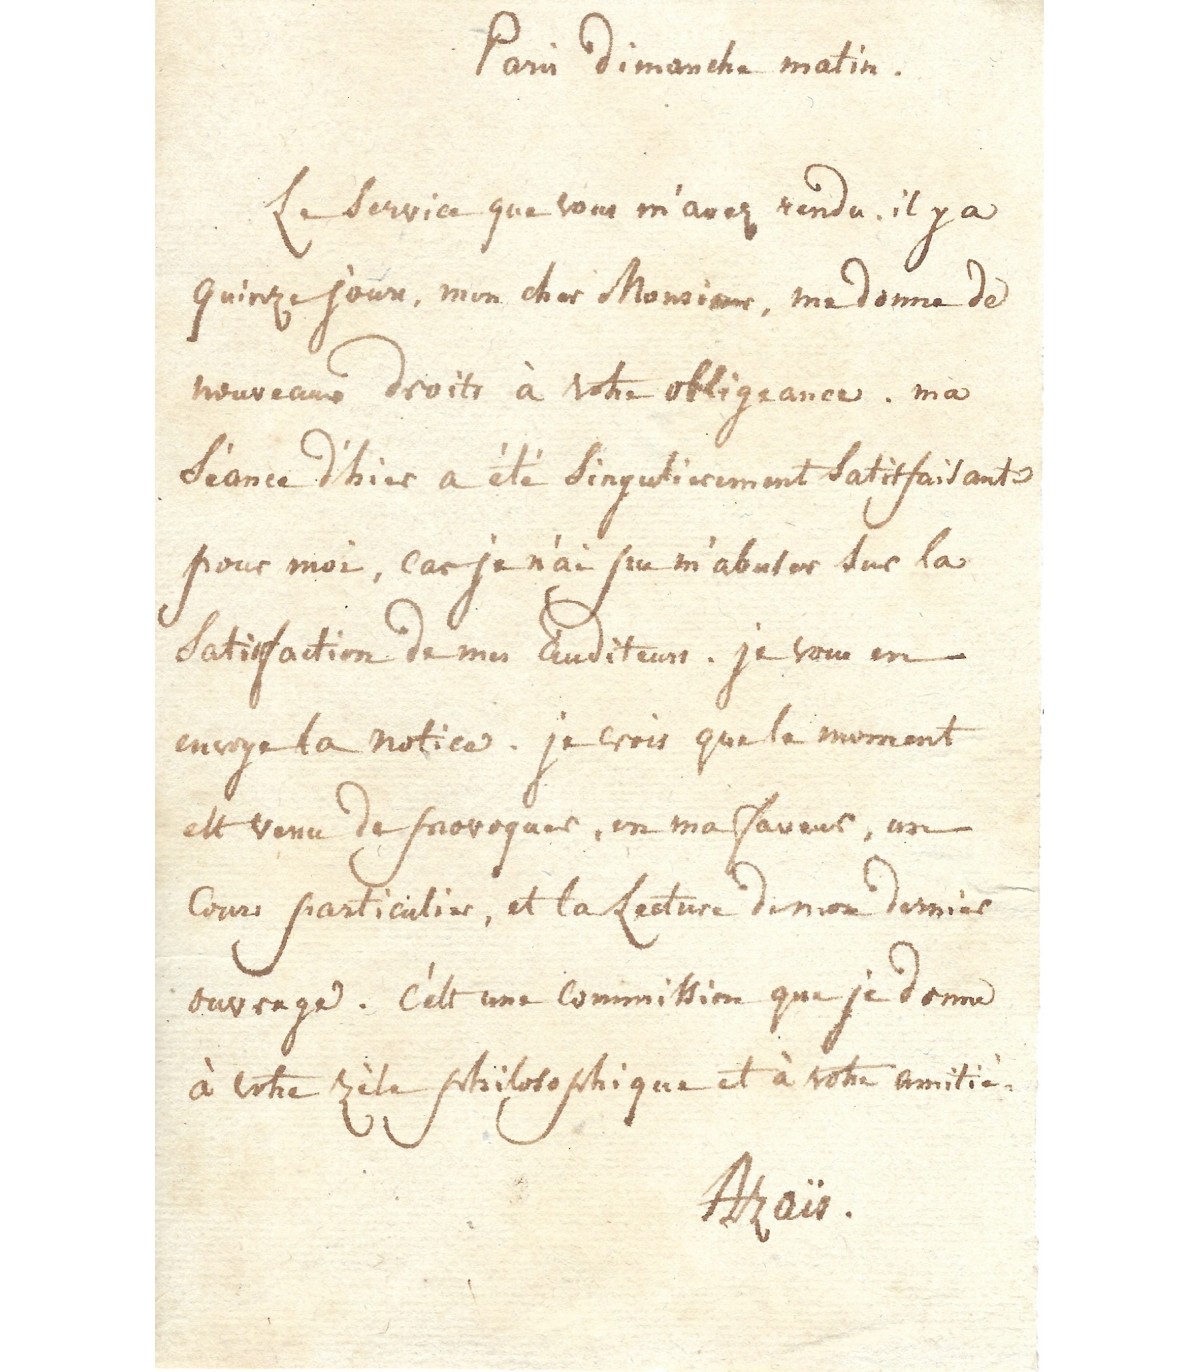 Paris dimanche matin.
Le Service que vous m'avez rendu. il y a
quinze jours, mon cher Monsieur, me donne de
nouveaux droits à votre obligeance. ma
Séance d'hier a été Singulièrement Satisfaisante
pour moi, car je n'ai pu m'abuser Sur la
Satisfaction de mes Auditeurs. je vous en
envoye la notice. je crois que le moment
est venu de provoquer, en ma faveur, un
Cours particulier, et la Lecture de mon dernier
ouvrage. C'est une Commission que je donne
à votre zèle philosophique et à votre amitié.
Azaïs.